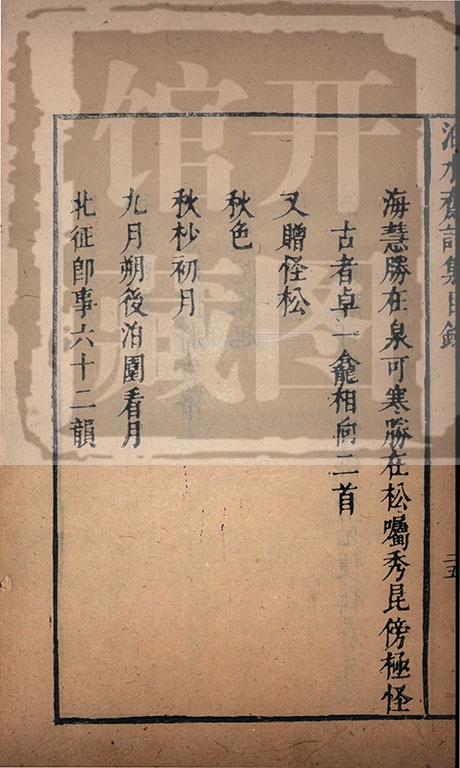 泊水齋詩集目錄
海慧勝在泉可寒勝在松囑秀昆傍極怪
古者卓一龕相向二首
又贈怪松
秋色
秋杪初月
九月朔後泊園看月
北征卽事六十二韻
开图
馆藏